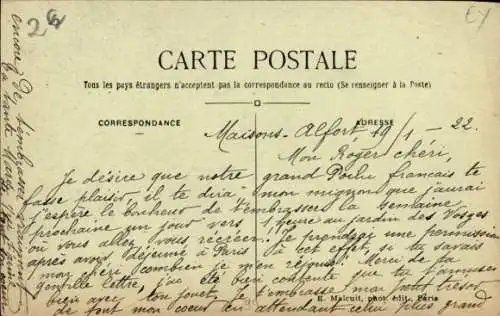 28
CARTE POSTALE
Tous les pays étrangers n'acceptent pas la correspondance au recto (Se renseigner à la Poste)
CORRESPONDANCE
ADRESSE
Maisons-Alfort 19/1-22.
Mon Roger chéri,
Je désire que notre grand Poilu français te
fasse plaisir il te dira mon mignon que j'aurai
j'espère le bonheur de t'embrasser la semaine
prochaine un jour vers 1 heure au jardin des Vosges
ou vous allez vous recréer. Je prendrai une permission
après avoir déjeuné à Paris à cet effet, si tu savais
mon chéri combien je m'en réjouis! Merci de ta
gentille lettre, j'ai été bien contente que tu t'amuses
bien avec ton jouet. Je t'embrasse mon petit trésor
de tout mon coeur en attendant celui plus grand
E. Malcuit, phot. édit., Paris
encore de t'embrasser